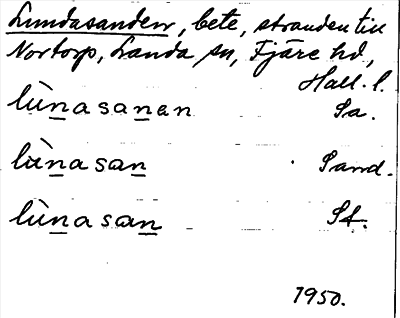 Lundasanden, bete, stranden till
Nortorp, Landa sn, Fjäre hd,
Hall. l.
lùnasanan Sa.
lùnasan Sand.
lùnasan St.
1950.